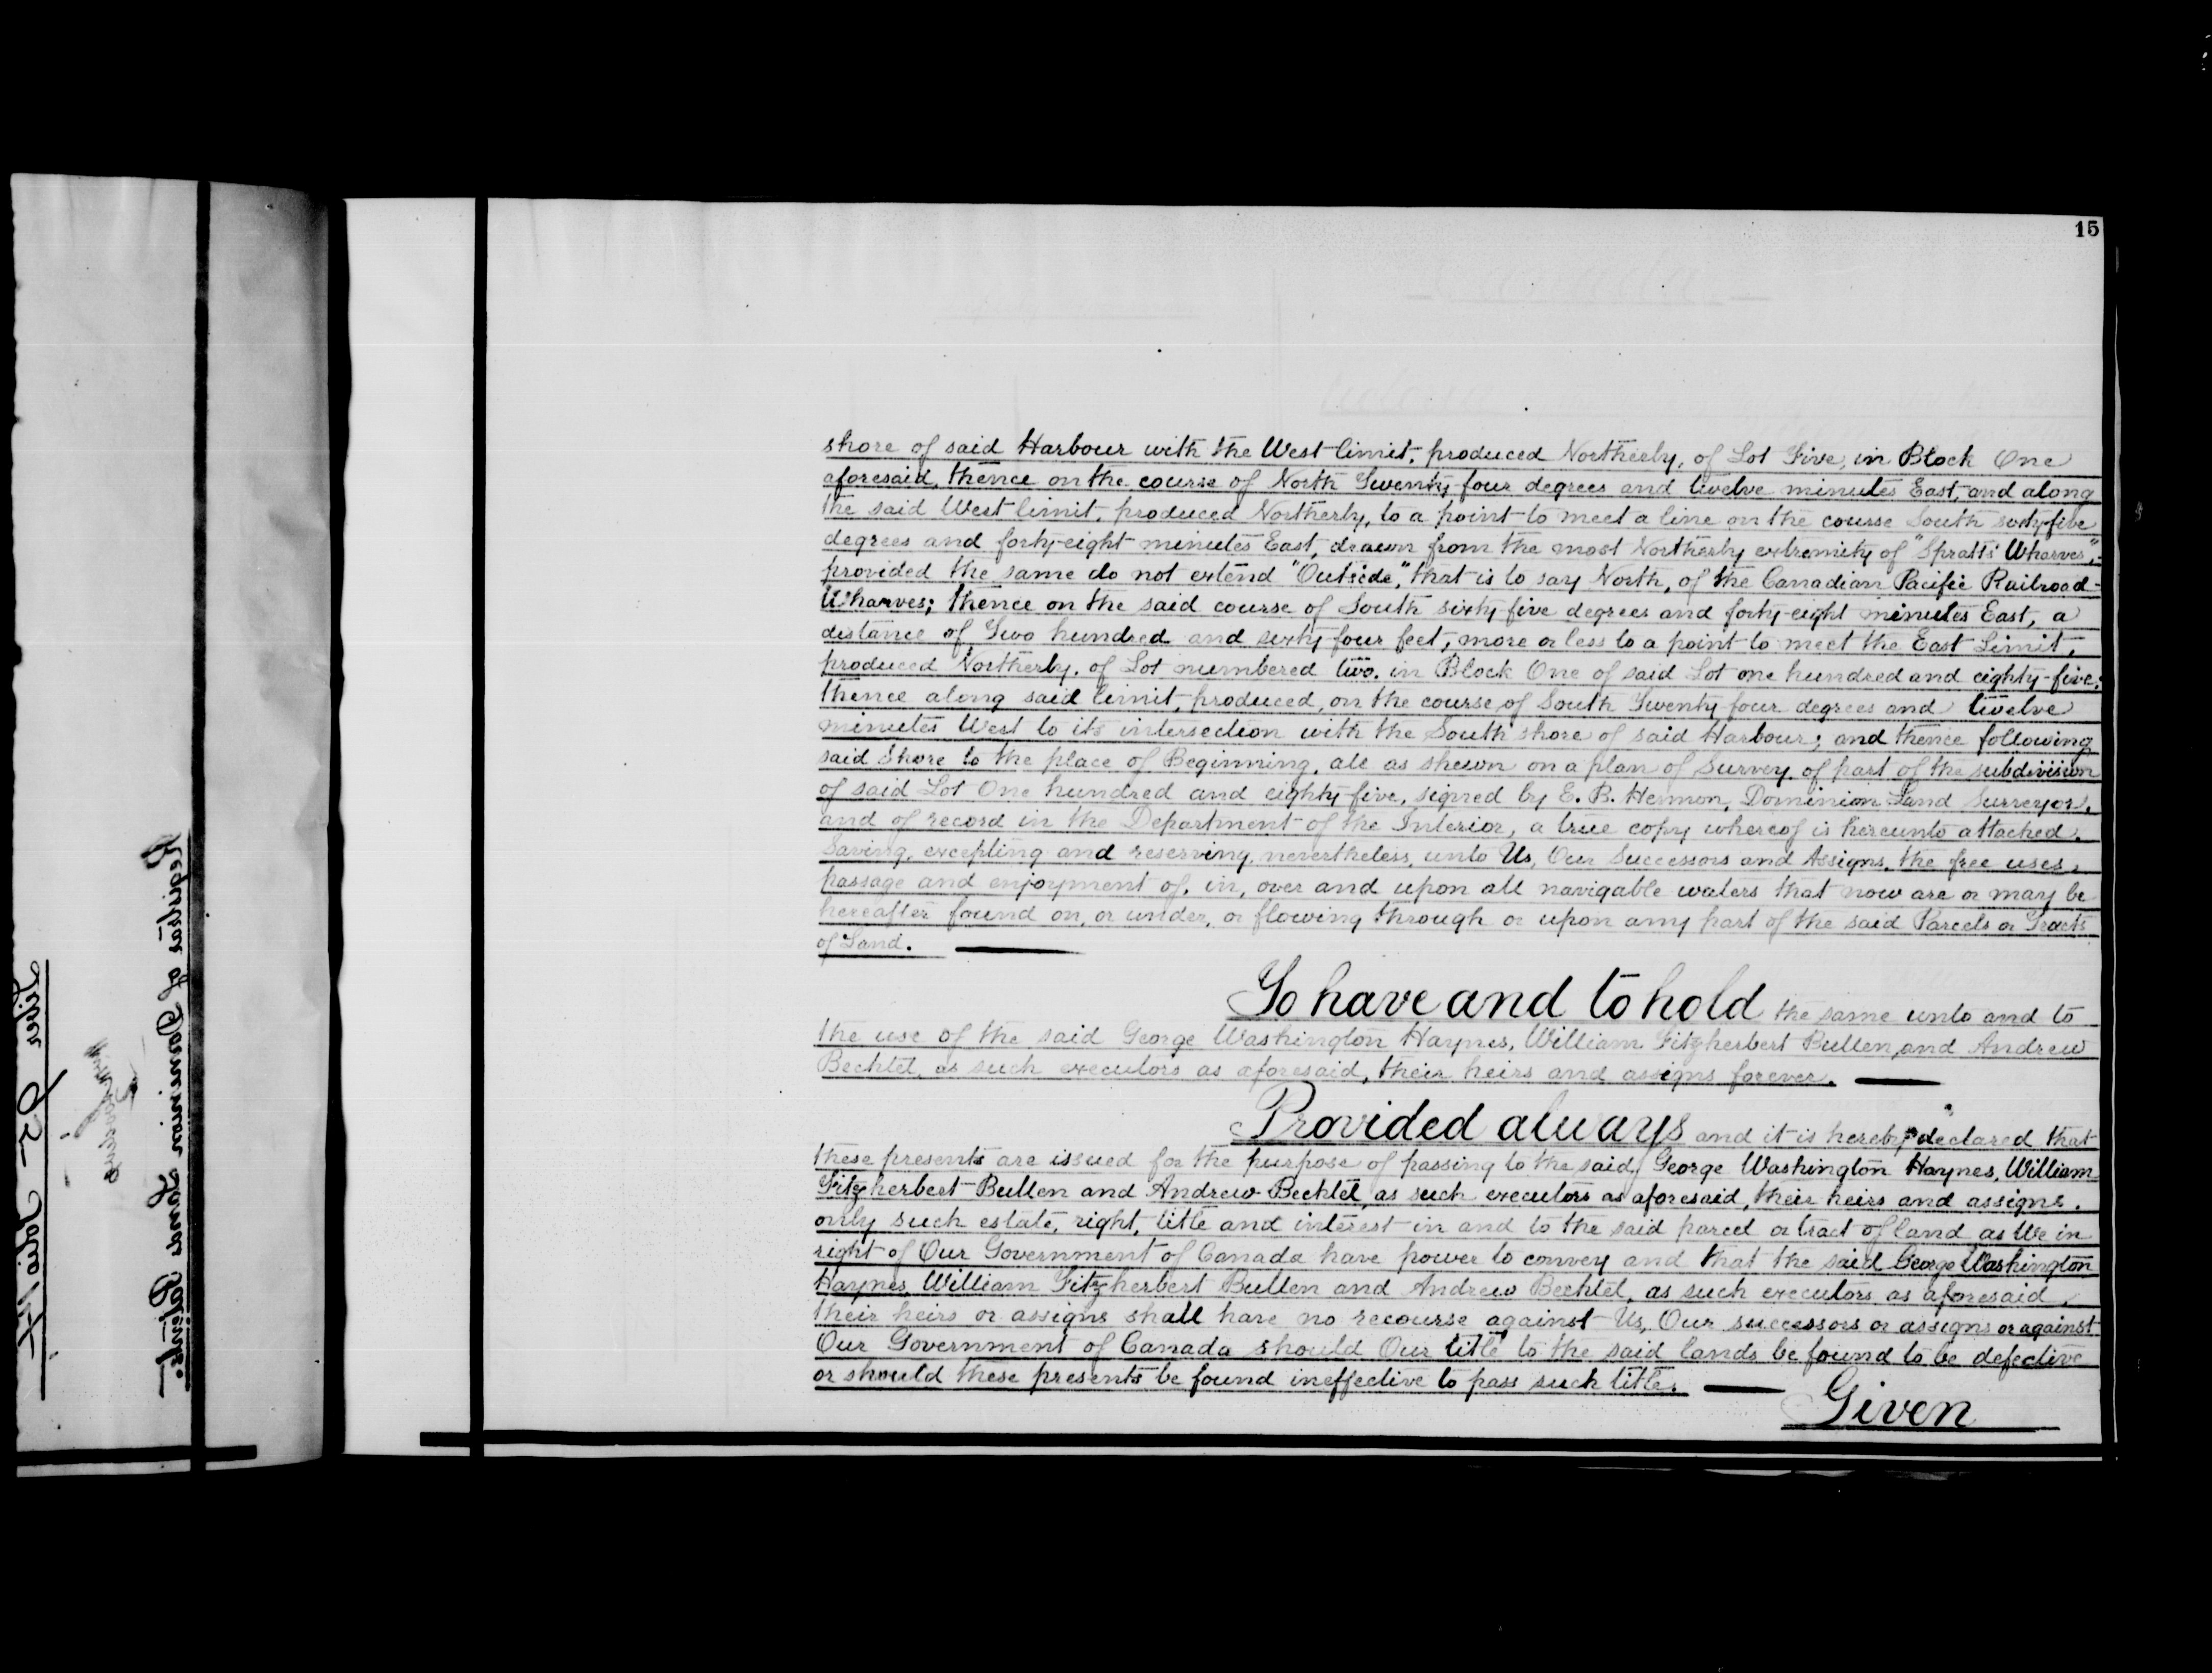 15
shore of said Harbour with the West limit, produced Northerly, of Lot Five, in Block One
aforesaid, thence on the course of North Twenty four degrees and twelve minutes East, and along
the said West limit, produced Northerly, to a point to meet a line on the course South sixty-five
degrees and forty-eight minutes East, drawn from the most Northerly extremity of "Spratts' Wharves",
provided the same do not extend "Outside," that is to say North, of the Canadian Pacific Railroad
Wharves; thence on the said course of South sixty five degrees and forty-eight minutes East, a
distance of Two hundred and sixty four feet, more or less to a point to meet the East Limit,
produced Northerly, of Lot numbered two, in Block One of said Lot one hundred and eighty-five;
thence along said limit, produced, on the course of South Twenty four degrees and twelve
minutes West to its intersection with the South shore of said Harbour; and thence following
said Shore to the place of Beginning, all as shewn on a plan of Survey of part of the subdivision
of said Lot One hundred and eighty five, signed by E. B. Hermon, Dominion Land Surveyor,
and of record in the Department of the Interior, a true copy whereof is hereunto attached.
Saving, excepting and reserving, nevertheless, unto Us, Our Successors and Assigns, the free uses,
passage and enjoyment of, in, over and upon all navigable waters that now are or may be
hereafter found on, or under, or flowing through or upon any part of the said Parcels or Tracts
of Land.
To have and to hold the same unto and to
the use of the said George Washington Haynes, William Fitzherbert Bullen, and Andrew
Bechtel, as such executors as aforesaid, their heirs and assigns forever.
Provided always and it is hereby declared that
these presents are issued for the purpose of passing to the said George Washington Haynes, William
Fitzherbert Bullen and Andrew Bechtel, as such executors as aforesaid, their heirs and assigns,
only such estate, right, title and interest in and to the said parcel or tract of land as We in
right of Our Government of Canada have power to convey and that the said George Washington
Haynes, William Fitzherbert Bullen and Andrew Bechtel, as such executors as aforesaid,
their heirs or assigns shall have no recourse against Us, Our successors or assigns or against
Our Government of Canada should Our title to the said lands be found to be defective
or should these presents be found ineffective to pass such title.
Given
Registrar of Dominion Lands Patents.
Liber 95 Folio 14